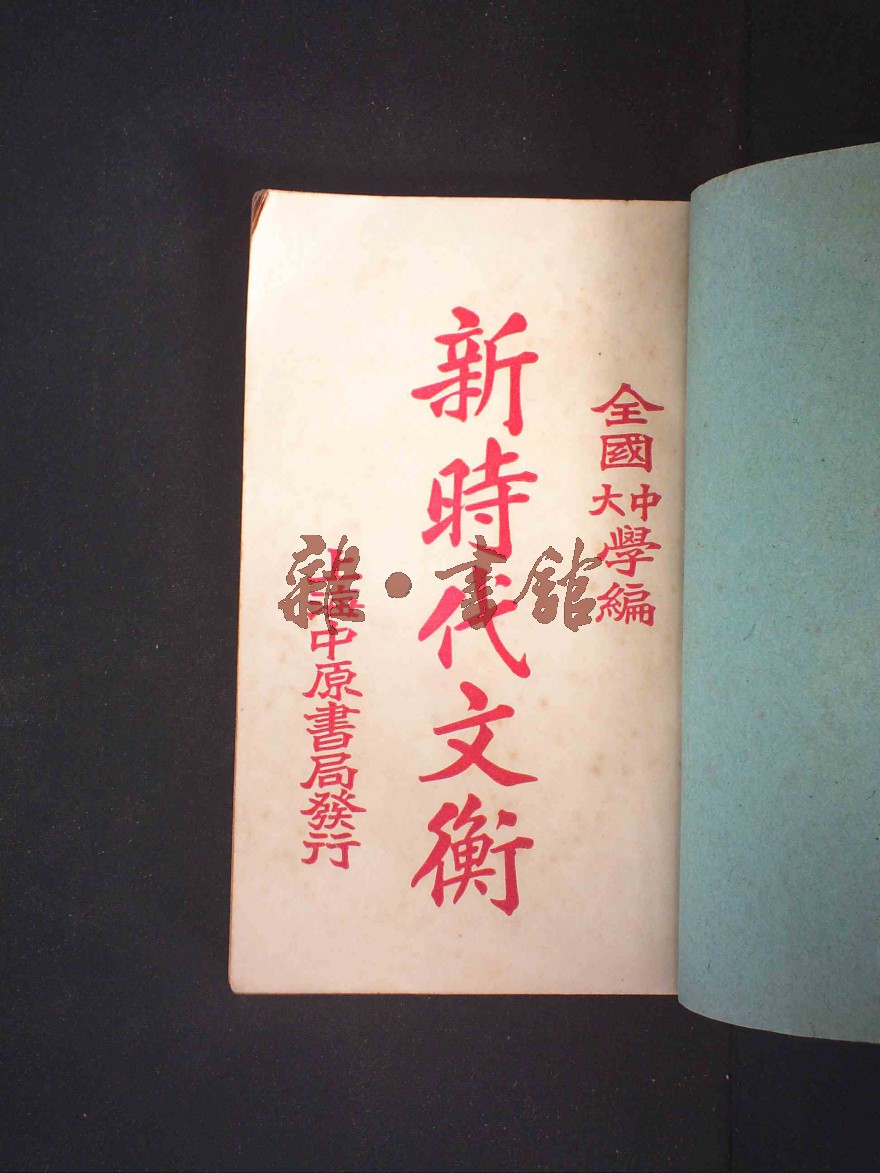 全國中大學編
新時代文衡
上海中原書局發行
雜·書館